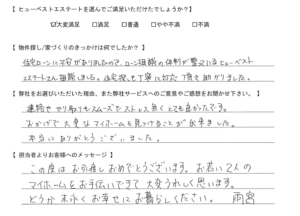 【 ヒューベストエステートを選んでご満足いただけたでしょうか？】
☑大変満足 □満足 □普通 □やや不満 □不満
【 物件探し/家づくりのきっかけは何でしたか？ 】
住宅ローンに不安がありましたので、ローン相談の体制が整っているヒューベスト
エステートさんに相談しました。住宅探しも丁寧に対応頂き助かりました。
【 弊社をお選びいただいた理由、また弊社サービスへのご意見やご感想をお聞かせ下さい。 】
連絡ややり取りもスムーズでストレス無くとても良かったです。
おかげで大事なマイホームを見つけることが出来ました。
本当にありがとうございました。
【 担当者よりお客様へのメッセージ 】
この度はお引渡しおめでとうございます。お若い2人の
マイホームをお手伝いできて大変うれしく思います。
どうか末永くお幸せにお暮らしください。 雨宮